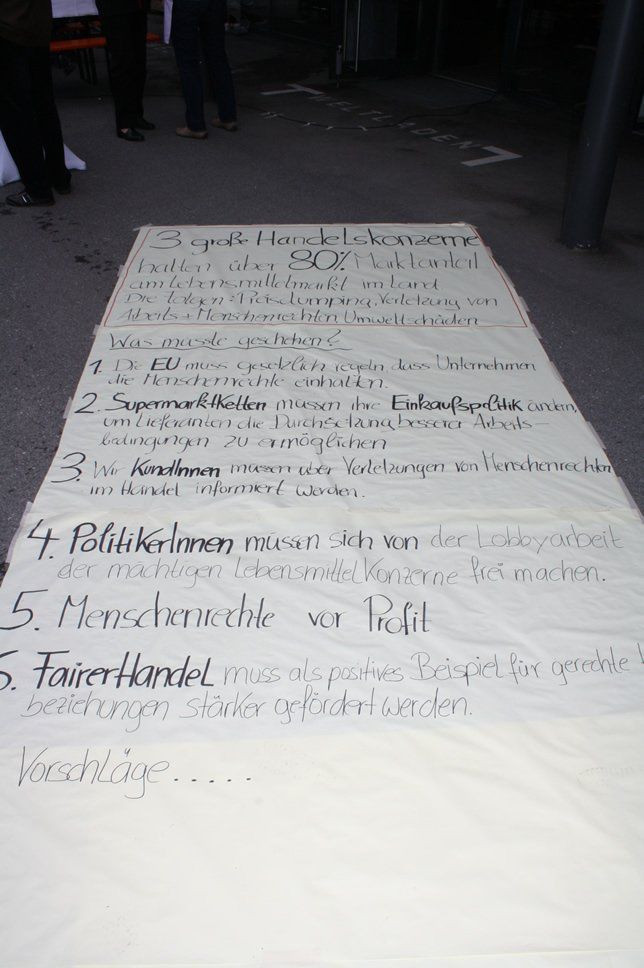 WELTLADEN
3 große Handelskonzerne
halten über 80% Marktanteil
am Lebensmittelmarkt im Land
Die Folgen: Preisdumping, Verletzung von
Arbeits + Menschenrechten, Umweltschäden
Was müsste geschehen?
1. Die EU muss gesetzlich regeln, dass Unternehmen
die Menschenrechte einhalten.
2. Supermarktketten müssen ihre Einkaufspolitik ändern,
um Lieferanten die Durchsetzung besserer Arbeits-
bedingungen zu ermöglichen
3. Wir KundInnen müssen über Verletzungen von Menschenrechten
im Handel informiert werden.
4. PolitikerInnen müssen sich von der Lobbyarbeit
der mächtigen Lebensmittelkonzerne frei machen.
5. Menschenrechte vor Profit
6. Fairer Handel muss als positives Beispiel für gerechte
beziehungen stärker gefördert werden.
Vorschläge.....